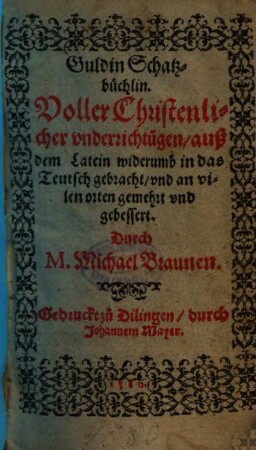 Guldin Schatz-
büchlin.
Voller Christenli-
cher vnderrichtũgen/auß
dem Latein widerumb in das
Teutsch gebracht/vnd an vi-
len orten gemehrt vnd
gebessert.
Durch
M. Michael Braunen.
Gedruckt zů Dilingen/durch
Johannem Mayer.